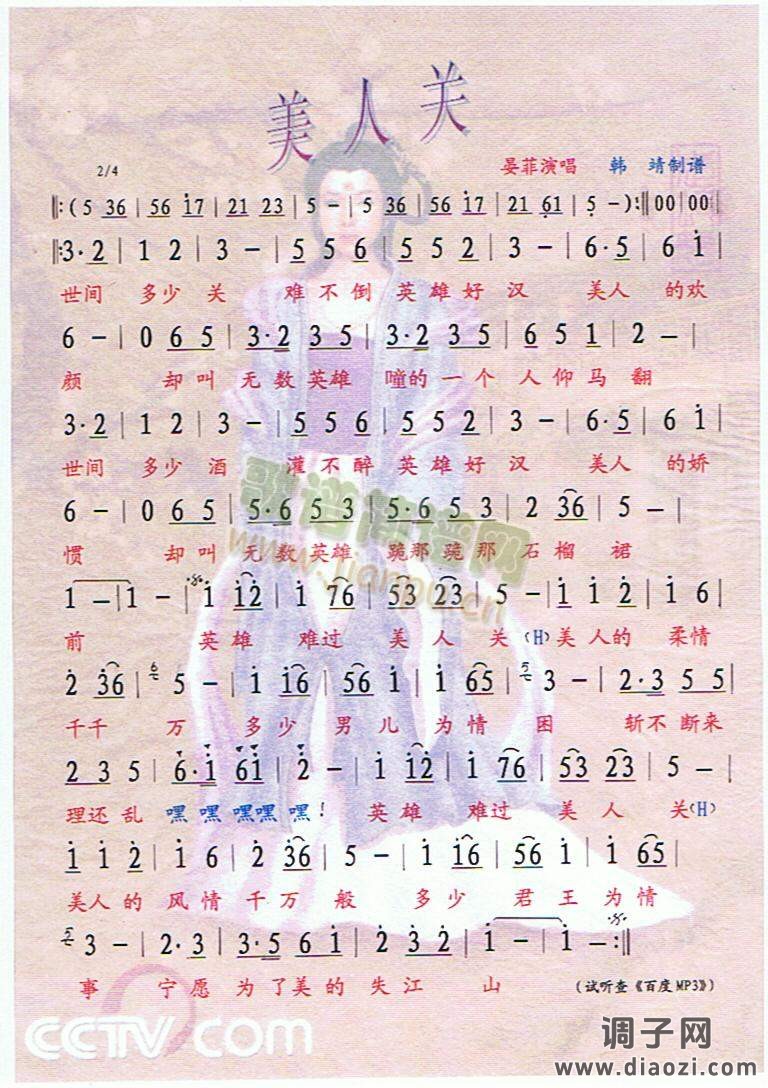 美人关
2/4
晏菲演唱 韩 靖制谱
‖:( 5 36 | 56 17 | 21 23 | 5 － | 5 36 | 56 17 | 21 61 | 5 － ) :‖ 00 | 00 |
‖:3·2 | 1 2 | 3 － | 5 5 6 | 5 5 2 | 3 － | 6·5 | 6 i |
世间 多少 关 难不倒 英雄好 汉 美人 的欢
6 － | 0 6 5 | 3·2 3 5 | 3·2 3 5 | 6 5 1 | 2 － |
颜 却叫 无数英雄 噇的一个 人仰马 翻
3·2 | 1 2 | 3 － | 5 5 6 | 5 5 2 | 3 － | 6·5 | 6 i |
世间 多少 酒 灌不醉 英雄好 汉 美人 的娇
6 － | 0 6 5 | 5·6 5 3 | 5·6 5 3 | 2 36 | 5 － |
惯 却叫 无数英雄 跪那跪那 石榴 裙
1 － | 1 － | i i2 | i 76 | 53 23 | 5 － | i i 2 | i 6 |
前 英雄 难过 美人 关(H)美人的 柔情
2 36 | 5 － | i i6 | 56 i | i 65 | 3 － | 2·3 5 5 |
千千 万 多少 男儿 为情 困 斩不断来
2 3 5 | 6·i 6i | 2 － | i i2 | i 76 | 53 23 | 5 － |
理还乱 嘿嘿嘿嘿嘿! 英雄 难过 美人 关(H)
i i 2 | i 6 | 2 36 | 5 － | i i6 | 56 i | i 65 |
美人的 风情 千万 般 多少 君王 为情
3 － | 2·3 | 3·5 6 i | 2 3 2 | i － | i － :‖
事 宁愿 为了美的 失江 山 (试听查《百度MP3》)
歌谱简谱网
www.jianpu.cn
CCTV.com
调子网
www.diaozi.com